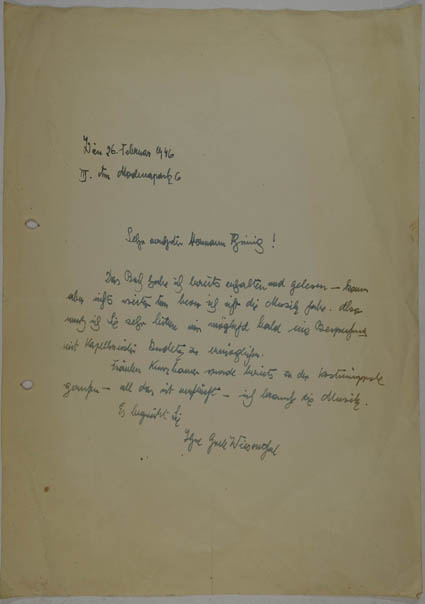 Wien 26. Februar 1946
III. Am Modenapark 6
Sehr verehrter Hermann !
Das Buch habe ich bereits erhalten und gelesen – kann
aber nichts weiter tun bevor ich nicht die Musik habe. Also
muss ich Sie sehr bitten mir möglichst bald eine Besprechung
mit Kapellmeister zu ermöglichen.
Fräulein wurde bereits zu der Kostümprobe
gerufen – all das ist verfrüht – ich brauche die Musik.
Es begrüsst Sie
Ihre Grete Wiesenthal